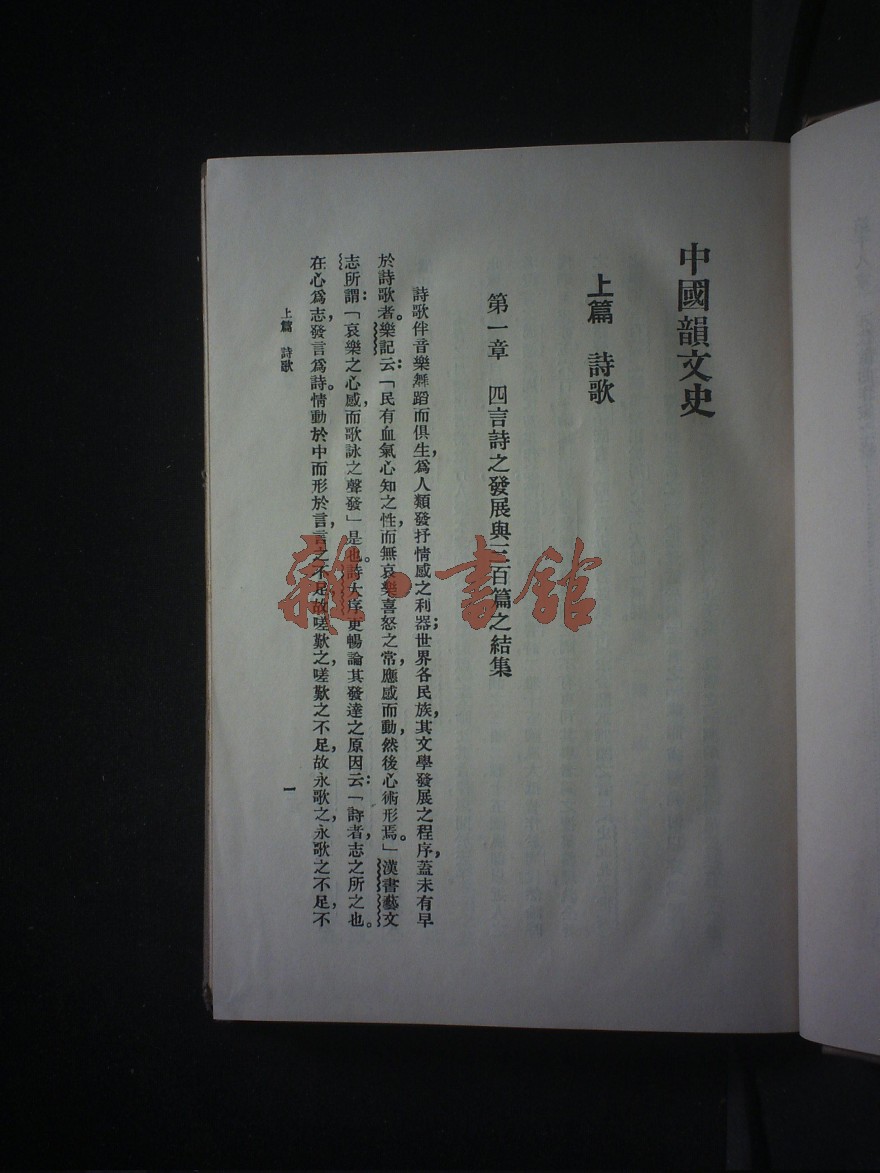 中國韻文史
上篇　詩歌
第一章　四言詩之發展與三百篇之結集
詩歌伴音樂舞蹈而俱生，爲人類發抒情感之利器；世界各民族，其文學發展之程序，蓋未有早
於詩歌者。樂記云：「民有血氣心知之性，而無哀樂喜怒之常，應感而動，然後心術形焉。」漢書藝文
志所謂：「哀樂之心感，而歌詠之聲發」是也。詩大序更暢論其發達之原因云：「詩者，志之所之也。
在心爲志，發言爲詩。情動於中而形於言，言之不足，故嗟歎之，嗟歎之不足，故永歌之，永歌之不足，不
上篇　詩歌
一
雜·書館